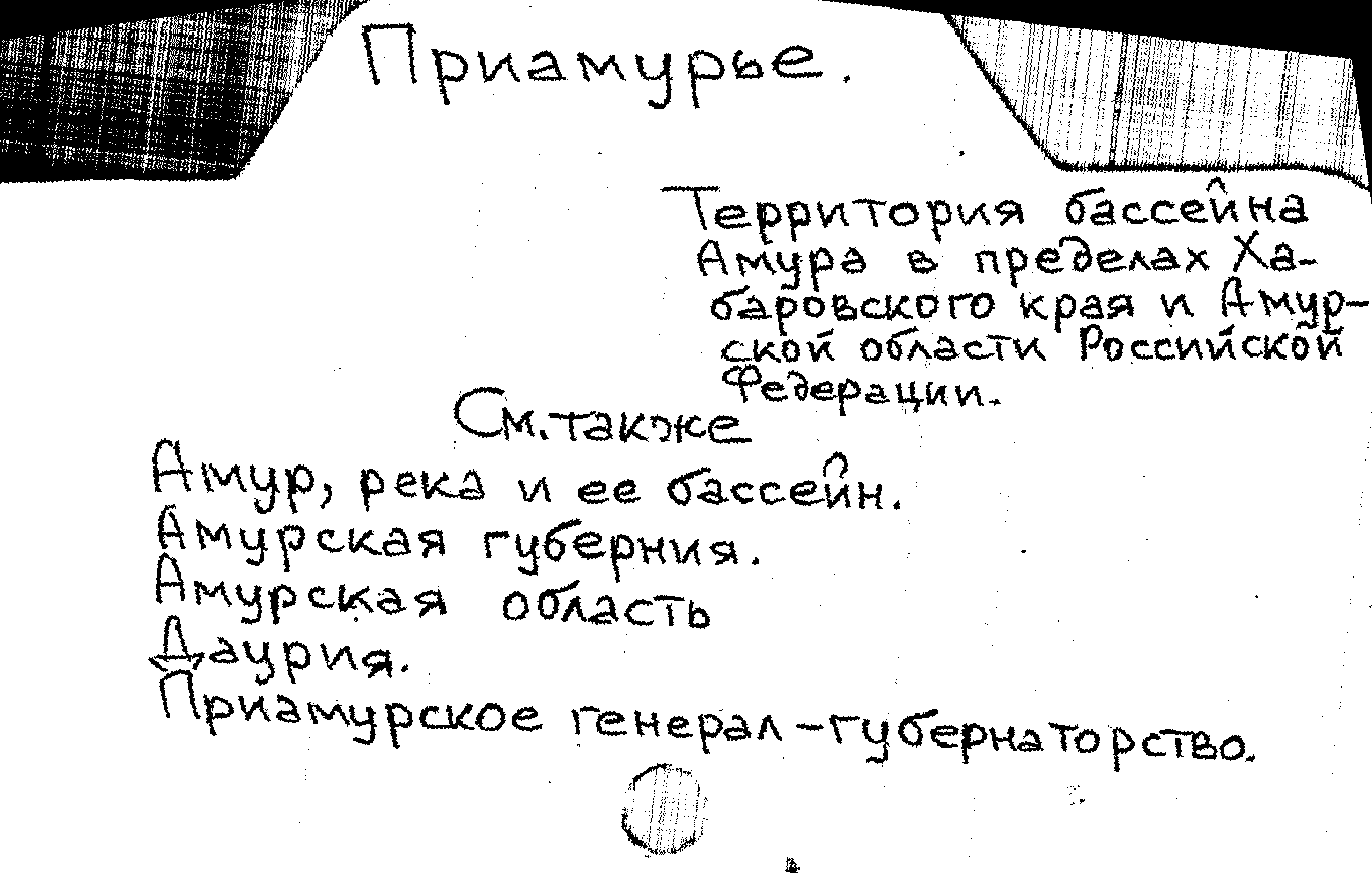 Приамурье.
Территория бассейна
Амура в пределах Ха-
баровского края и Амур-
ской области Российской
Федерации.
См. также
Амур, река и ее бассейн.
Амурская губерния.
Амурская область
Даурия.
Приамурское генерал-губернаторство.